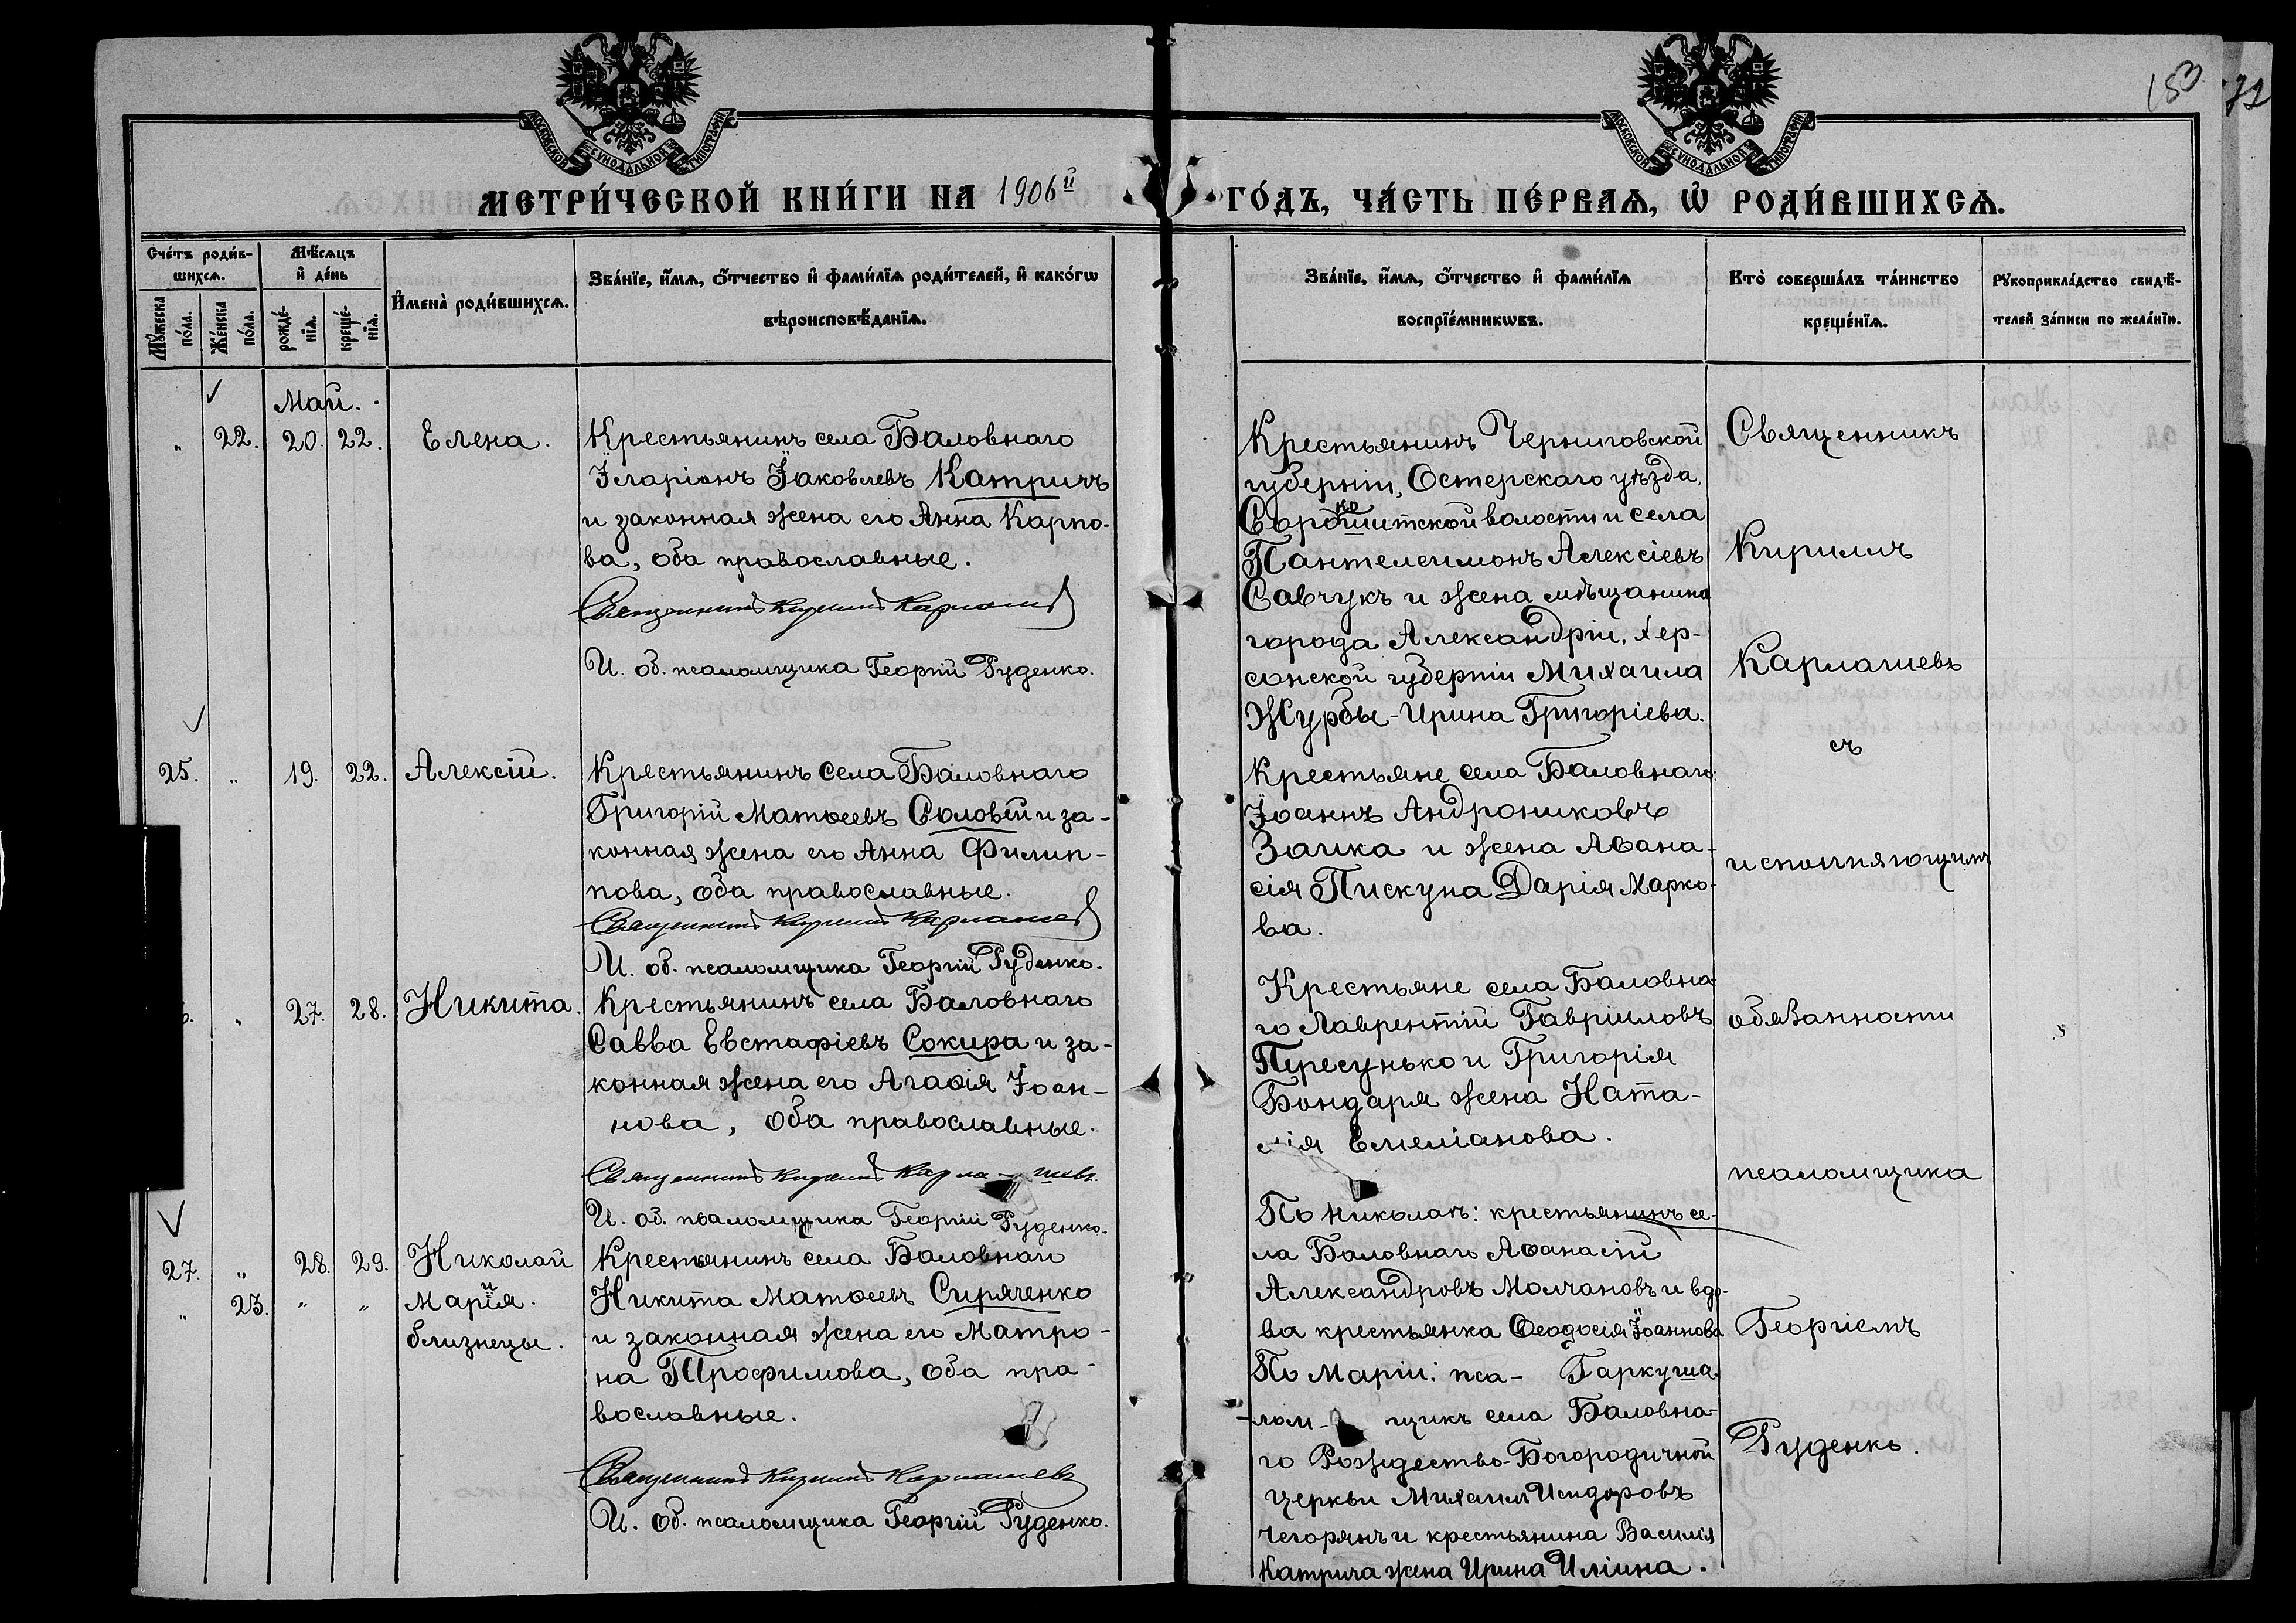 153
72
МОСКОВСКОЙ СѴНОДАЛЬНОЙ ТИПОГРАФІИ
МОСКОВСКОЙ СѴНОДАЛЬНОЙ ТИПОГРАФІИ
МЕТРИ́ЧЕСКОЙ КНИ́ГИ НА 1906й ГО́ДЪ, ЧА́СТЬ ПЕ́РВАѦ, Ѡ҆ РОДИ́ВШИХСѦ.
Сче́тъ роди́в-
шихсѧ.
Мꙋ́жеска по́ла.
Же́нска по́ла.
Мѣ́сѧцъ
и҆ де́нь
рожде́-
нїѧ.
креще́-
нїѧ.
И҆мена̀ роди́вшихсѧ.
Зва́нїе, и҆́мѧ, ѻ҆́тчество и҆ фами́лїѧ роди́телей, и҆ како́гѡ
вѣроисповѣ́данїѧ.
Зва́нїе, и҆́мѧ, ѻ҆́тчество и҆ фами́лїѧ
воспрїе́мникѡвъ.
Кто̀ соверша́лъ та́инство
креще́нїѧ.
Рꙋкоприкла́дство свидѣ́-
телей за́писи по жела́нїю.
Май.
" 22. 20. 22. Елена.
Крестьянинъ села Баловнаго
Іларіонъ Іаковлевъ Катричъ
и законная жена его Анна Карпо-
ва, оба православные.
Священникъ Кириллъ Карпашевъ
И. об. псаломщика Георгій Руденко.
Крестьянинъ Черниговской
губерніи, Остерскаго уѣзда,
Сорокошитской волости и села
Пантелеимонъ Алексіевъ
Савчукъ и жена мѣщанина
города Александріи, Хер-
сонской губерніи Михаила
Журбы - Ирина Григоріева.
25. " 19. 22. Алексій.
Крестьянинъ села Баловнаго
Григорій Матѳеевъ Соловей и за-
конная жена его Анна Филип-
пова, оба православные.
Священникъ Кириллъ Карпашевъ
И. об. псаломщика Георгій Руденко.
Крестьяне села Баловнаго:
Іоаннъ Андрониковъ
Заика и жена Аѳана-
сія Пискуна Дарія Марко-
ва.
" 27. 28. Никита.
Крестьянинъ села Баловнаго
Савва Евстафіевъ Сокира и за-
конная жена его Агаѳія Іоан-
нова, оба православные.
Священникъ Кириллъ Карпашевъ.
И. об. псаломщика Георгій Руденко.
Крестьяне села Баловна-
го Лаврентій Гавріиловъ
Пересунько и Григорія
Бондаря жена Ната-
лія Емеліанова.
27. " 28. 29. Николай
и
" 23. " " Марія.
близнецы.
Крестьянинъ села Баловнаго
Никита Матѳеевъ Сиряченко
и законная жена его Матро-
на Трофимова, оба пра-
вославные.
Священникъ Кириллъ Карпашевъ
И. об. псаломщика Георгій Руденко.
По Николаѣ: крестьянинъ се-
ла Баловнаго Аѳанасій
Александровъ Молчановъ и вдо-
ва крестьянка Ѳеодосія Іоаннова
Гаркуша.
По Маріи: пса-
лом- щикъ села Баловна-
го Рождество-Богородичной
церкви Михаилъ Исидоровъ
Чегорянъ и крестьянина Василія
Катрича жена Ирина Иліина.
Священникъ
Кириллъ
Карпашевъ
съ
исполняющимъ
обязанности
псаломщика
Георгіемъ
Руденко.